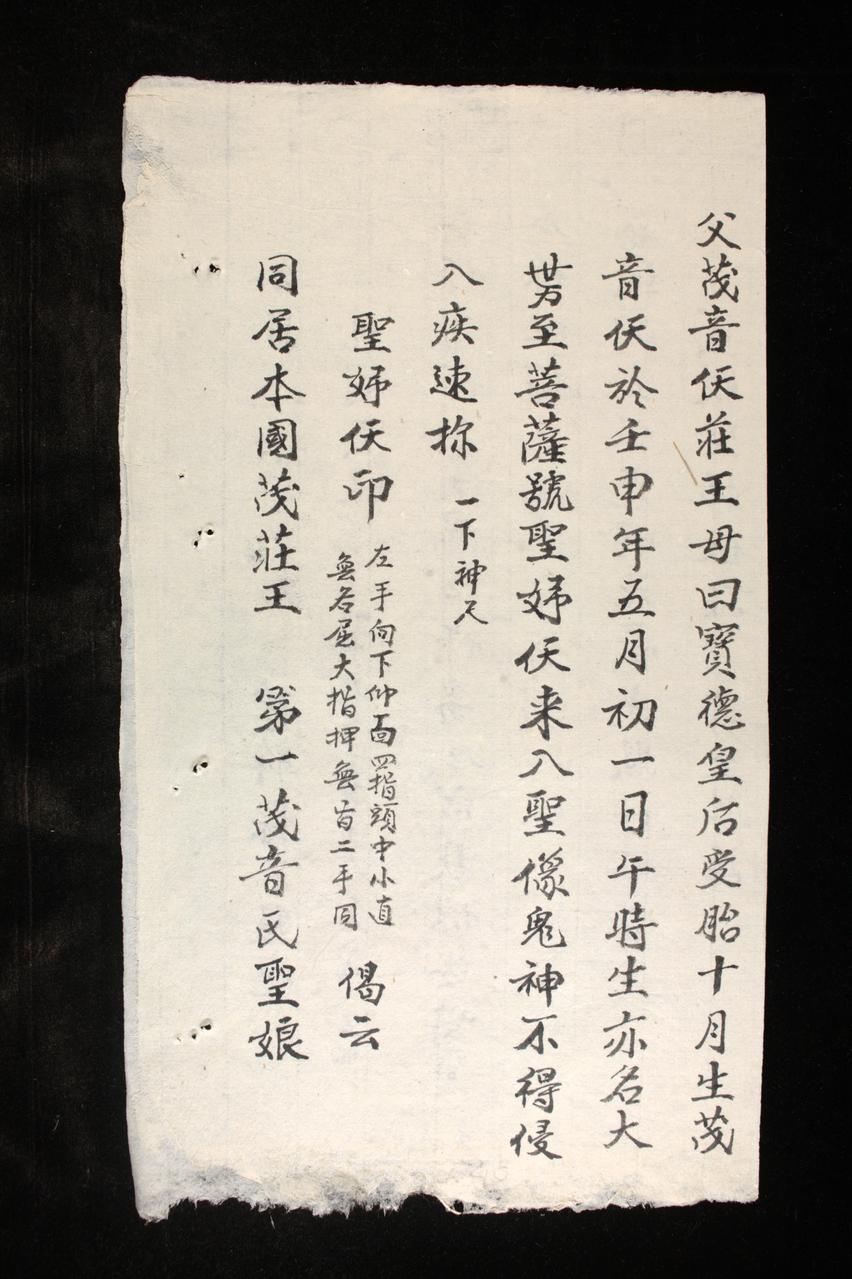 父茂音仸莊王母曰寶德皇后受胎十月生茂
音仸於壬申年五月初一日午時生亦名大
势至菩薩號聖娣仸来入聖像鬼神不得侵
入疾速捺 一下神尺
聖娣仸印 左手向下仰面四指頭中小直
無名屈大指押無名二手同 偈云
同居本國茂莊王 第一茂音氏聖娘